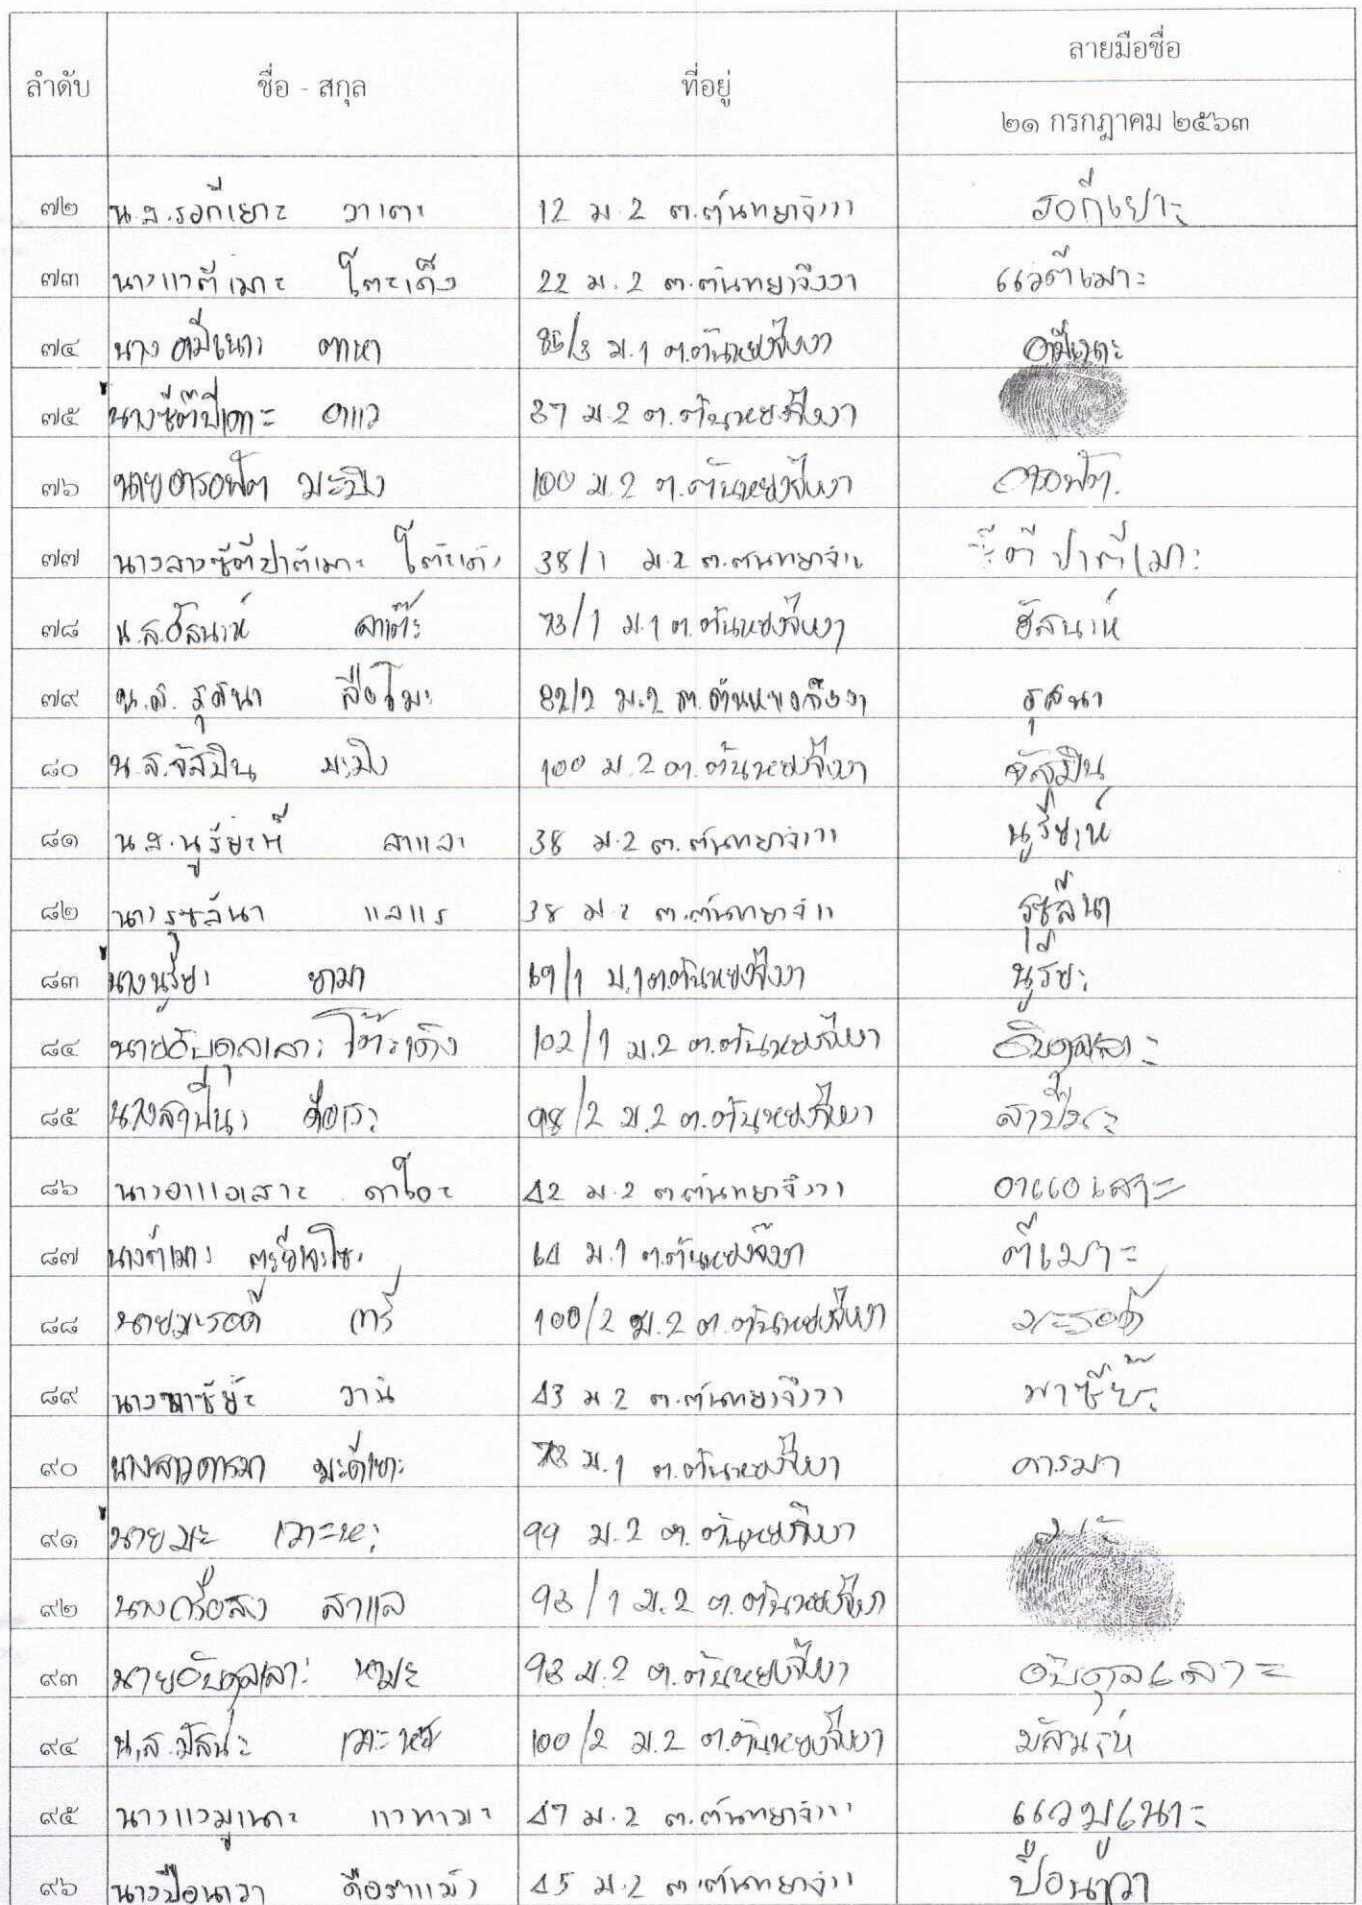 ลำดับ ชื่อ - สกุล ที่อยู่ ลายมือชื่อ
๒๑ กรกฎาคม ๒๕๖๓
๗๒ น.ส.รอกีเยาะ วาเตะ 12 ม.2 ต.ตันหยงจึงงา รอกีเยาะ
๗๓ นางแวตีเมาะ โตะเด็ง 22 ม.2 ต.ตันหยงจึงงา แวตีเมาะ
๗๔ นางอามีเนาะ ตาหา ม.1 ต.ตันหยงจึงงา อามีเนาะ
๗๕ อาแว 37 ม.2 ต.ตันหยงจึงงา
๗๖ นายอารอฟัต มะปิง 100 ม.2 ต.ตันหยงจึงงา อารอฟัต.
๗๗ นางสาวซีตีปาตีเมาะ โต๊ะเด็ง 38/1 ม.2 ต.ตันหยงจึงงา ซีตีปาตีเมาะ
๗๘ น.ส.ฮัสนาห์ สาเต๊ะ 73/1 ม.1 ต.ตันหยงจึงงา ฮัสนาห์
๗๙ น.ส. รุสนา ลือโมะ 82/2 ม.2 ต.ตันหยงจึงงา รุสนา
๘๐ น.ส.จัสมิน มะปิง 100 ม.2 ต.ตันหยงจึงงา จัสมิน
๘๑ น.ส.นูรียะห์ สาและ 38 ม.2 ต.ตันหยงจึงงา นูรียะห์
๘๒ นางรุซลีนา แลแร 38 ม.2 ต.ตันหยงจึงงา รุซลีนา
๘๓ นางนูรียะ ยามา 69/1 ม.1 ต.ตันหยงจึงงา นูรียะ
๘๔ นายอับดุลเลาะ โต๊ะเด็ง 102/1 ม.2 ต.ตันหยงจึงงา อับดุลเลาะ
๘๕ นางสาปีนะ 98/2 ม.2 ต.ตันหยงจึงงา สาปีนะ
๘๖ นางอาแอเสาะ 42 ม.2 ต.ตันหยงจึงงา อาแอเสาะ
๘๗ นางตีเมาะ 64 ม.1 ต.ตันหยงจึงงา ตีเมาะ
๘๘ นายมะรอดี 100/2 ม.2 ต.ตันหยงจึงงา มะรอดี
๘๙ วานิ 43 ม.2 ต.ตันหยงจึงงา
๙๐ นางสาวดารมา 73 ม.1 ต.ตันหยงจึงงา ดารมา
๙๑ นายมะ เจาะหะ 99 ม.2 ต.ตันหยงจึงงา
๙๒ สาแล 93/1 ม.2 ต.ตันหยงจึงงา
๙๓ นายอับดุลเลาะ หามะ 93 ม.2 ต.ตันหยงจึงงา อับดุลเลาะ
๙๔ น.ส.มัสนะ 100/2 ม.2 ต.ตันหยงจึงงา มัสนะห์
๙๕ นางแวมูเนาะ แวหามะ 47 ม.2 ต.ตันหยงจึงงา แวมูเนาะ
๙๖ นางปือนาวา 45 ม.2 ต.ตันหยงจึงงา ปือนาวา